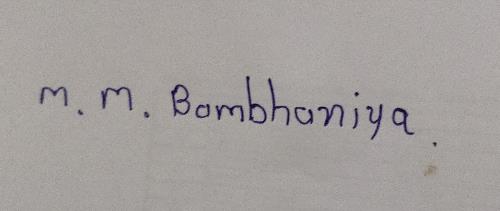 M. M. Bambhaniya.